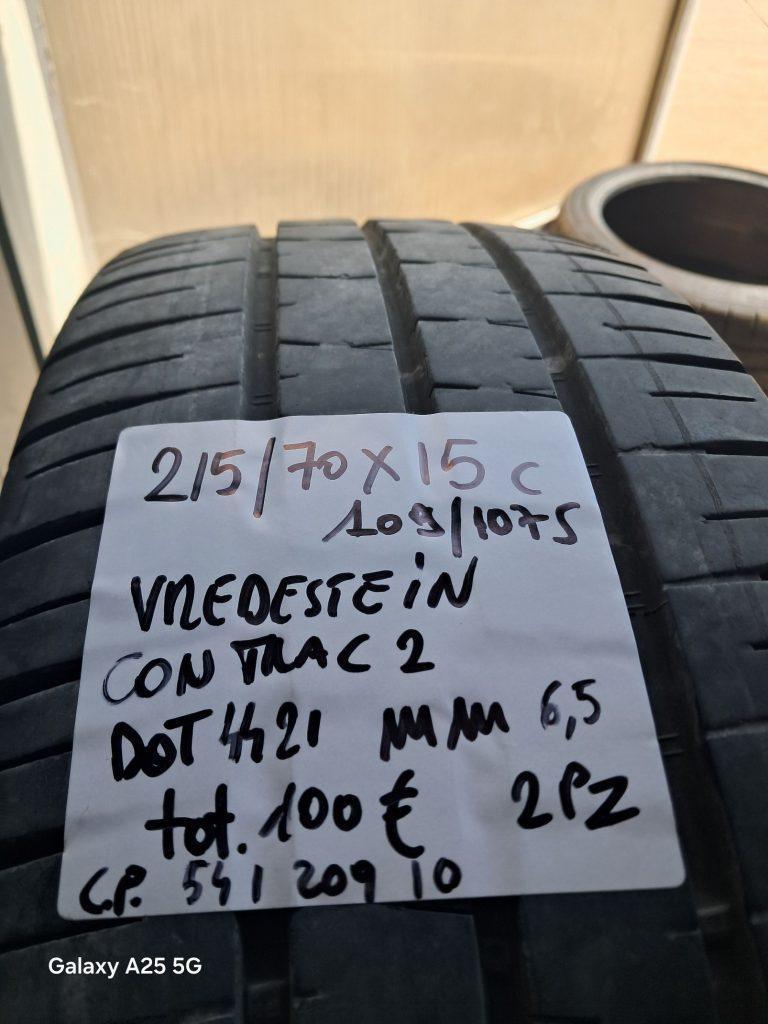 215/70 X 15 C
109/107S
VREDESTEIN
CONTRAC 2
DOT 4421 MM 6,5
tot. 100 € 2PZ
C.P. 541 209 10
Galaxy A25 5G